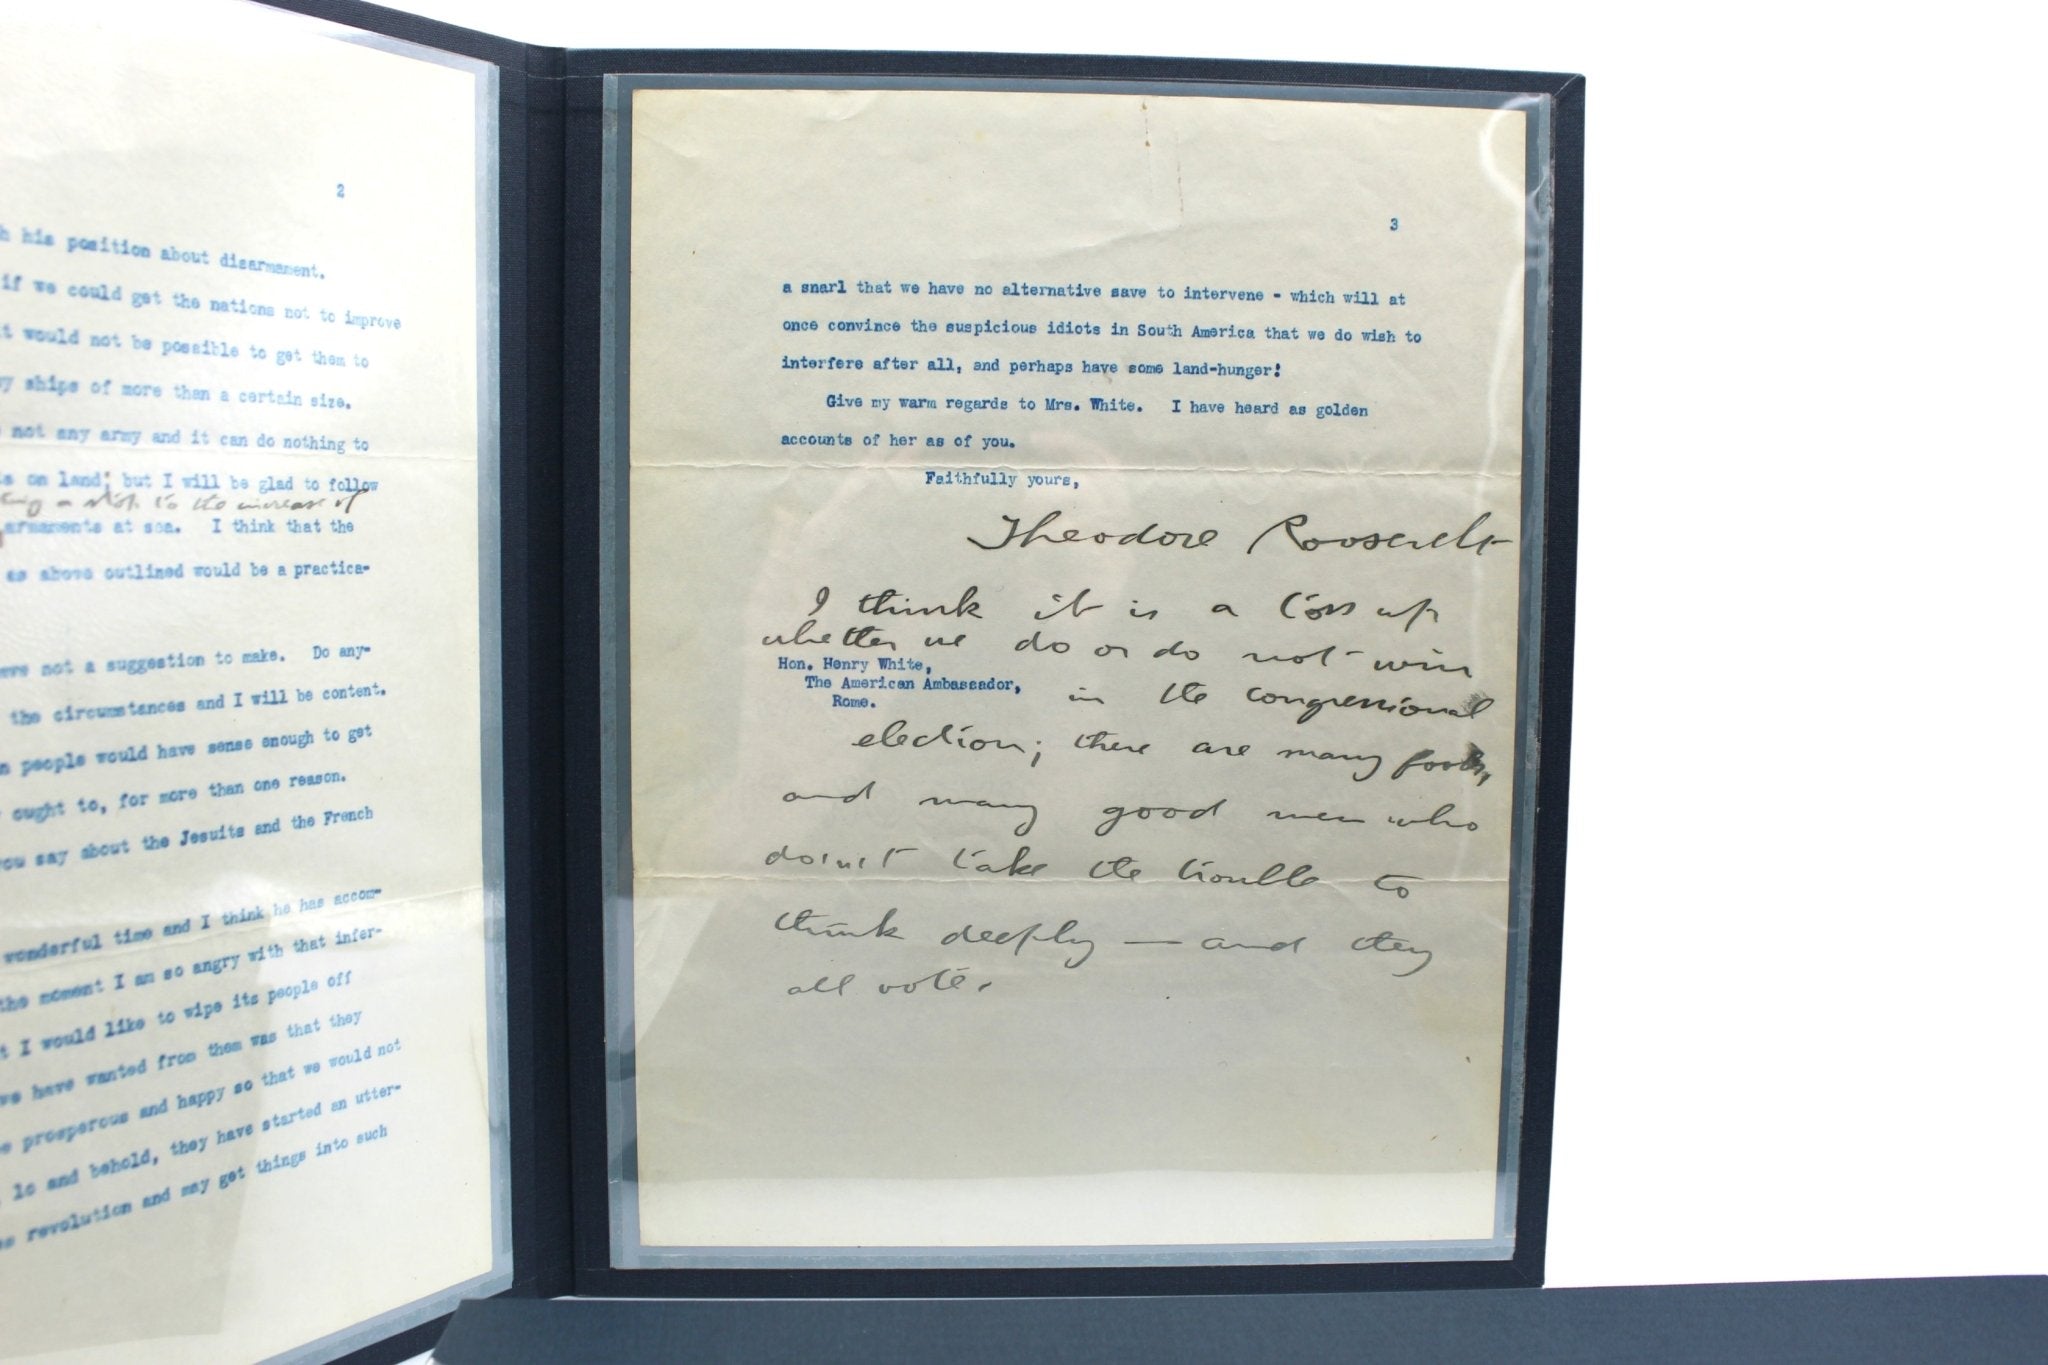 2
h his position about disarmament.
if we could get the nations not to improve
t would not be possible to get them to
y ships of more than a certain size.
not any army and it can do nothing to
s on land; but I will be glad to follow
king a stop to the increase of
armaments at sea. I think that the
as above outlined would be a practica-
ave not a suggestion to make. Do any-
the circumstances and I will be content.
n people would have sense enough to get
y ought to, for more than one reason.
you say about the Jesuits and the French
wonderful time and I think he has accom-
the moment I am so angry with that infer-
t I would like to wipe its people off
we have wanted from them was that they
e prosperous and happy so that we would not
, lo and behold, they have started an utter-
ss revolution and may get things into such
3
a snarl that we have no alternative save to intervene - which will at
once convince the suspicious idiots in South America that we do wish to
interfere after all, and perhaps have some land-hunger!
Give my warm regards to Mrs. White. I have heard as golden
accounts of her as of you.
Faithfully yours,
Theodore Roosevelt
I think it is a toss up
whether we do or do not win
Hon. Henry White,
The American Ambassador,
Rome.
in the congressional
election; there are many fools,
and many good men who
doesn't take the trouble to
think deeply — and they
all vote.